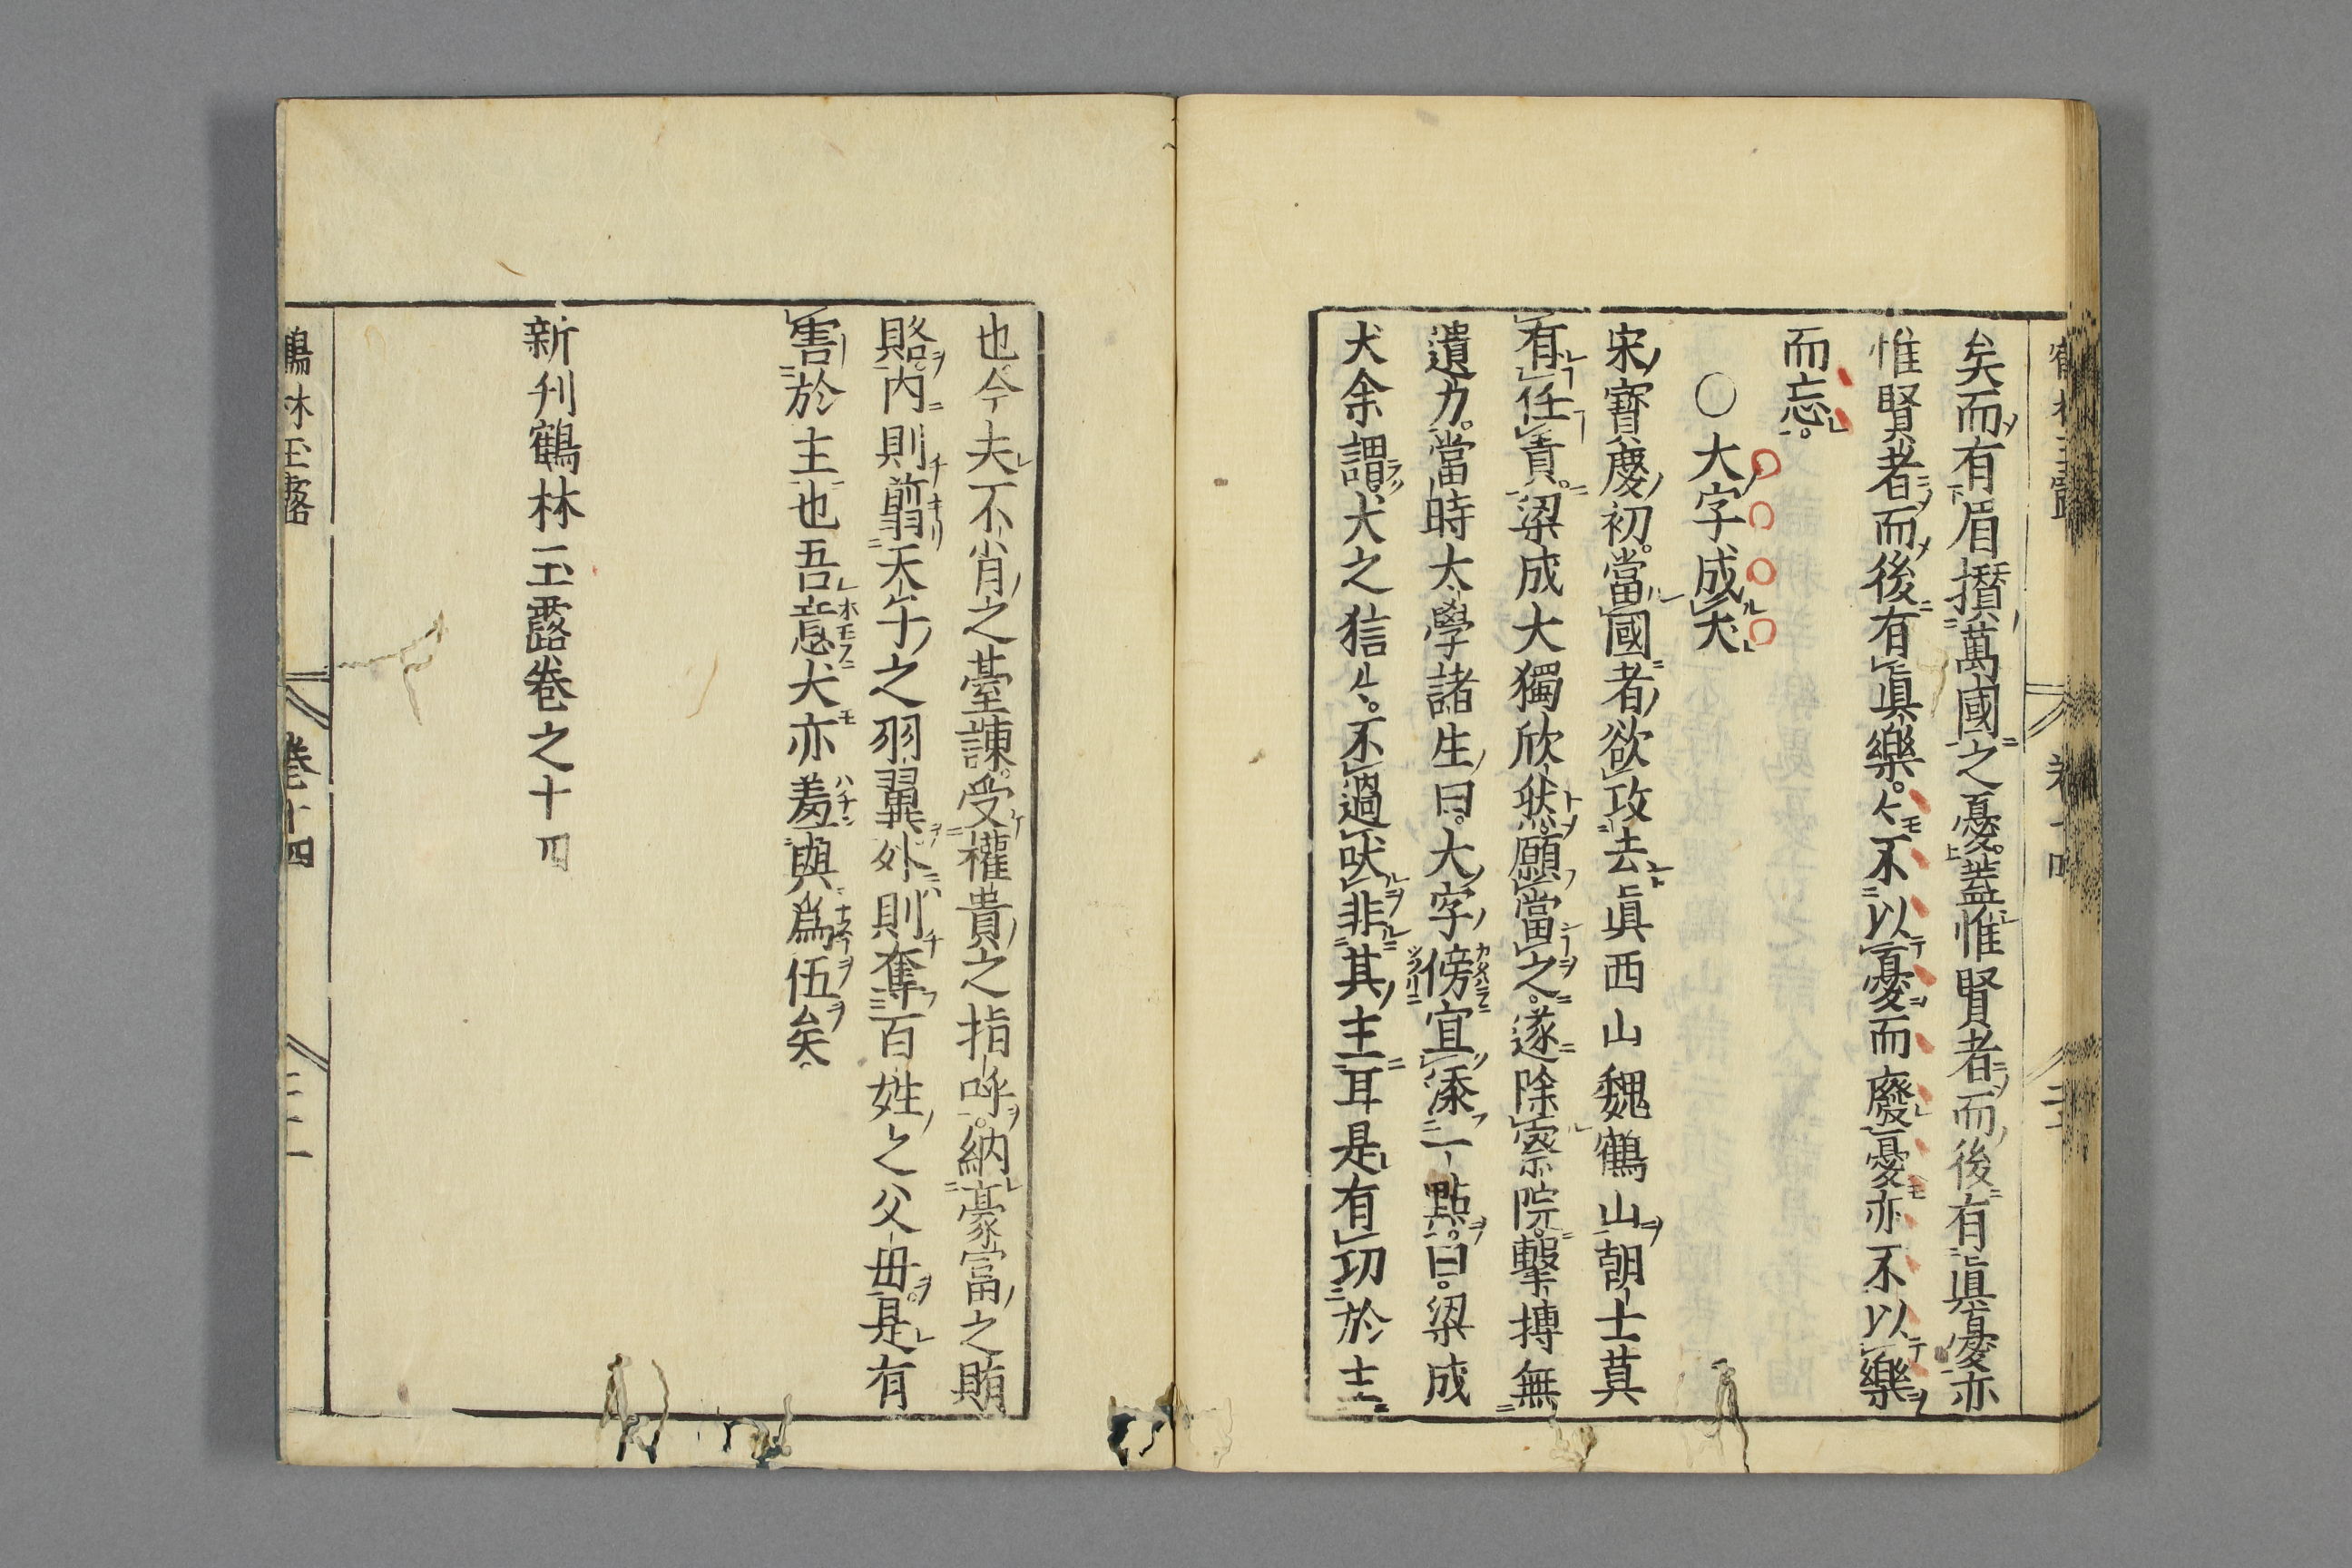 矣而有眉攅萬國之憂蓋惟賢者而後有眞憂亦
惟賢者而後有眞樂。々不以憂而廢憂亦不以樂
而忘。
○大字成犬
宋寶慶初。當國者欲攻去眞西山魏鶴山朝士莫
有任責。梁成大獨欣然願當之。遂除察院。擊摶無
遺力。當時太學諸生曰。大字傍宜添一點。曰。梁成
犬余謂犬之狺々。不過吠非其主耳是有功於主
也今夫不肖之臺諫。受權貴之指呼。納豪富之賄
賂。内則翦天子之羽翼外則奪百姓之父毋。是有
害於主也吾意犬亦羞與爲伍矣
新刋鶴林玉露卷之十四
鶴林玉露 卷十四